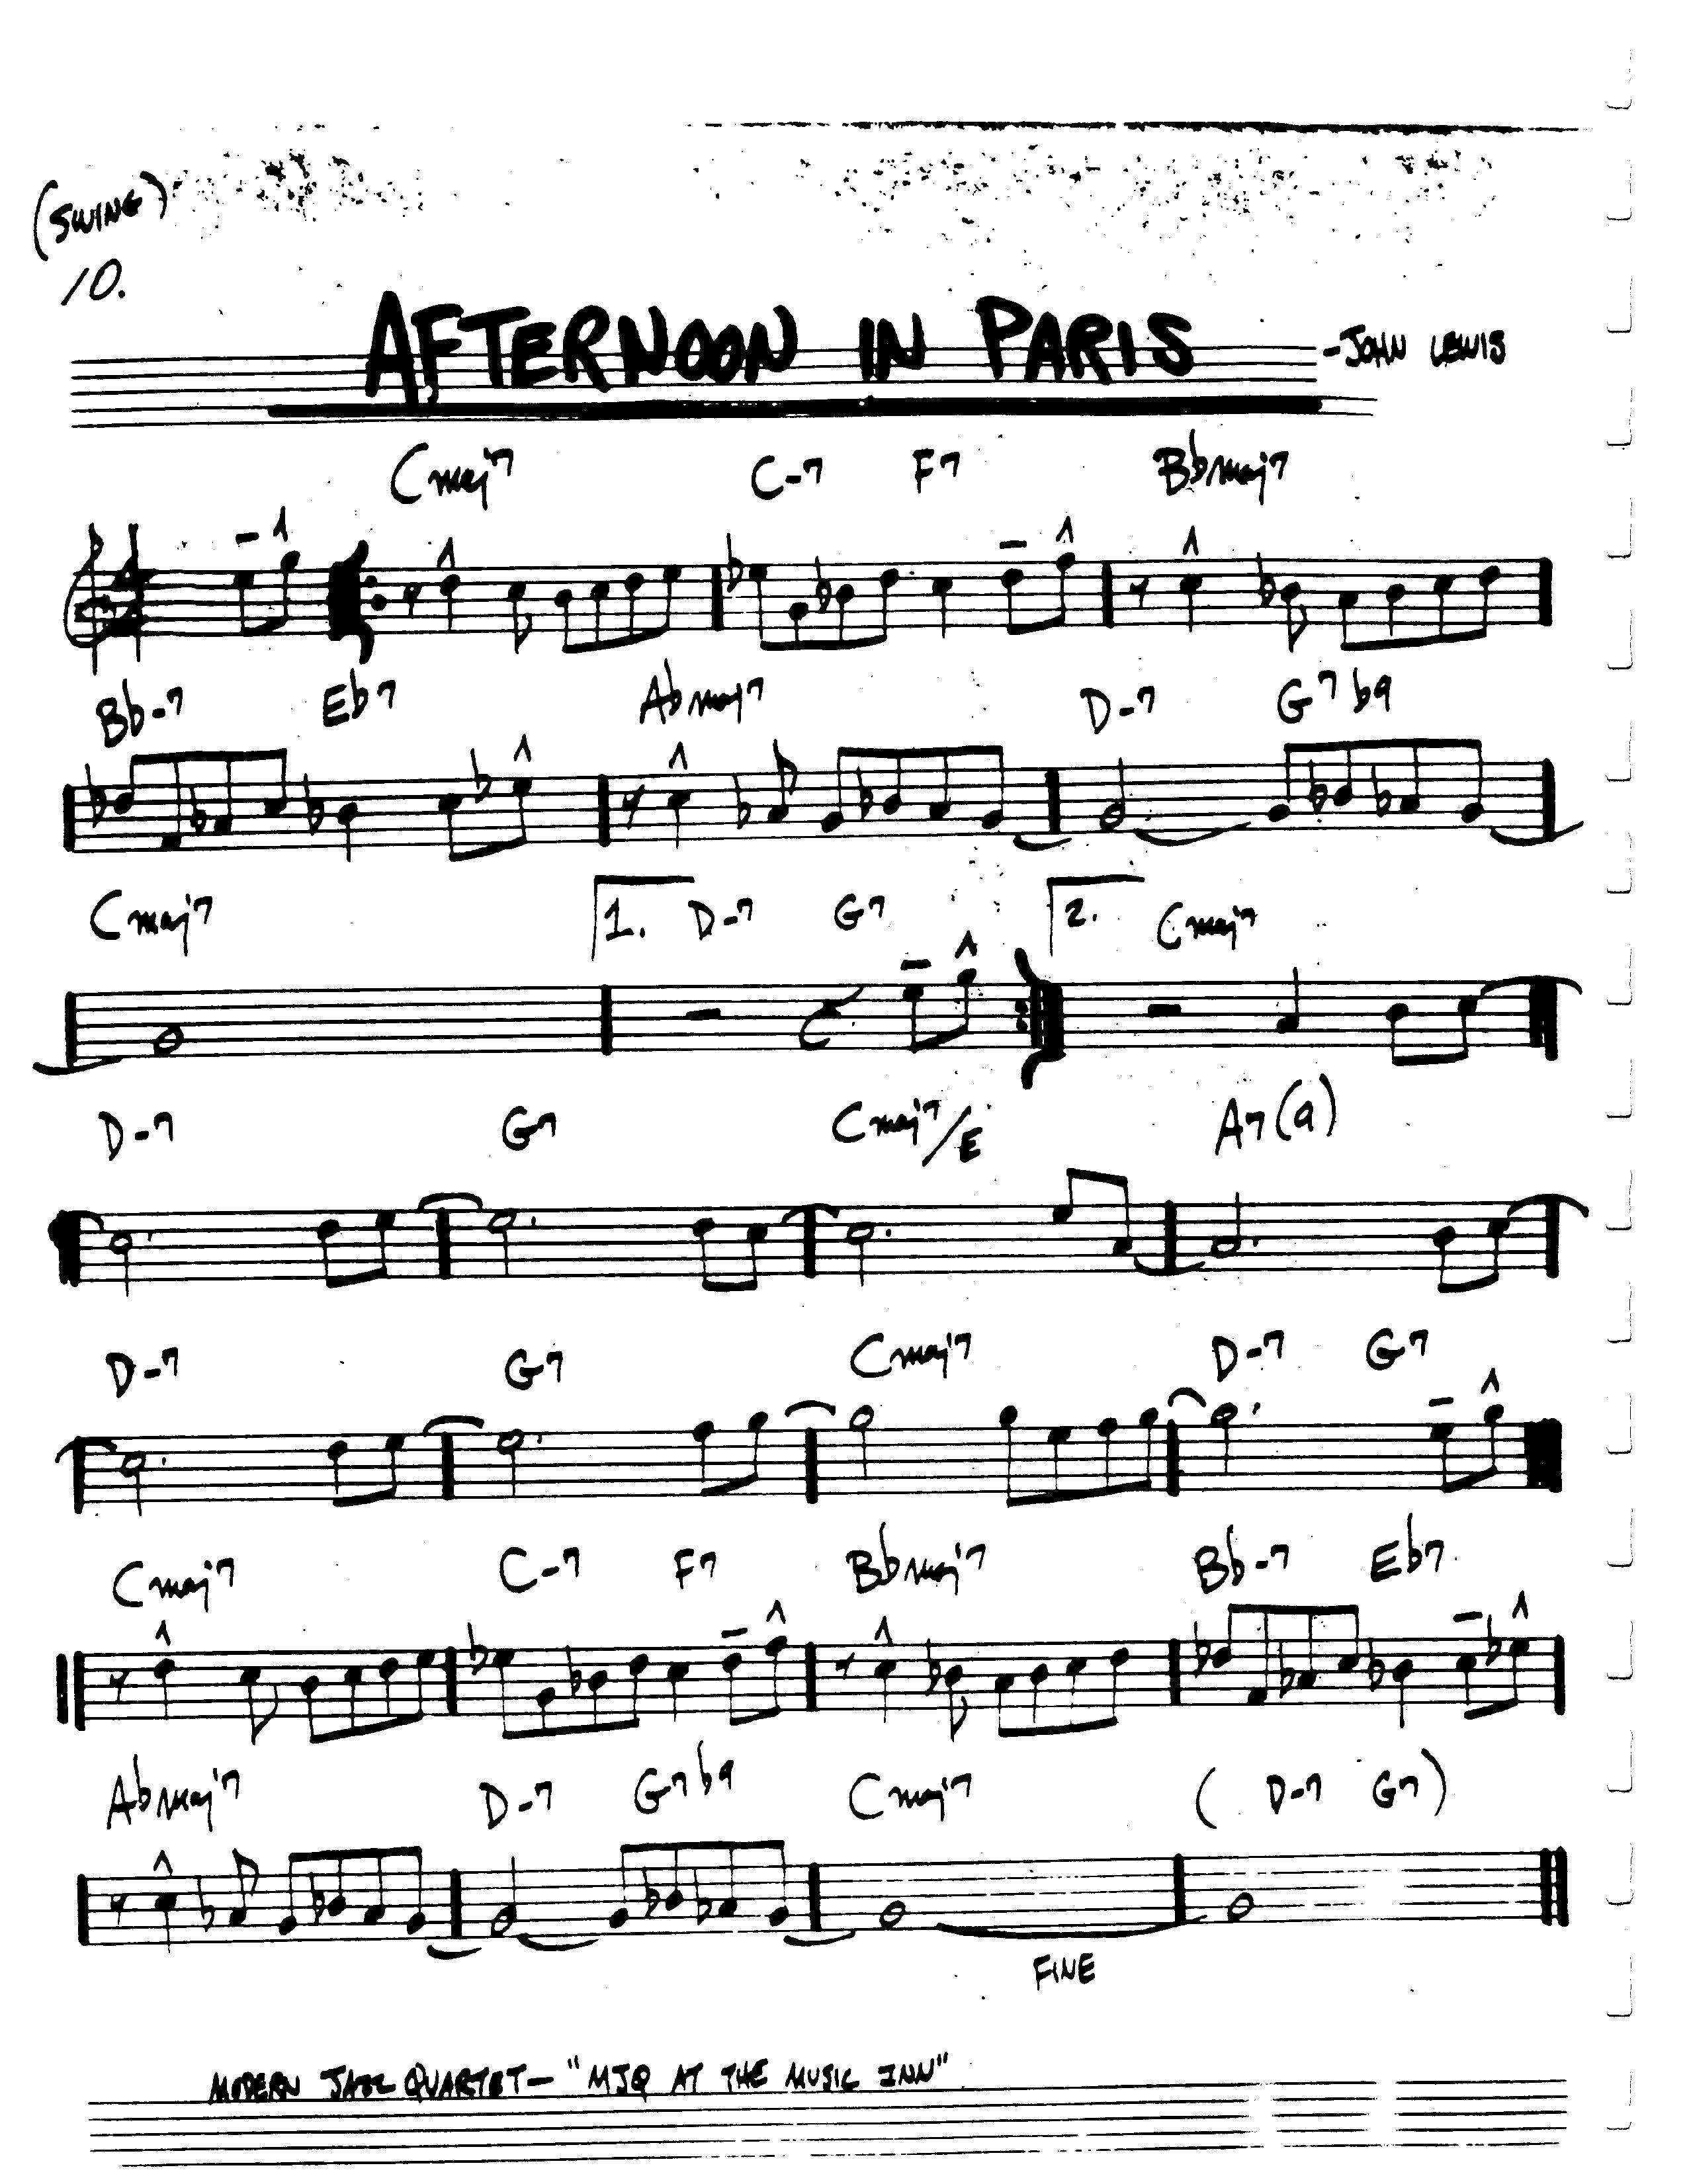 (SWING)
10.
AFTERNOON IN PARIS -JOHN LEWIS
Cmaj7 C-7 F7 Bbmaj7
Bb-7 Eb7 Abmaj7 D-7 G7b9
Cmaj7 1. D-7 G7 2. Cmaj7
D-7 G7 Cmaj7/E A7(9)
D-7 G7 Cmaj7 D-7 G7
Cmaj7 C-7 F7 Bbmaj7 Bb-7 Eb7
Abmaj7 D-7 G7b9 Cmaj7 ( D-7 G7 )
FINE
MODERN JAZZ QUARTET- "MJQ AT THE MUSIC INN"